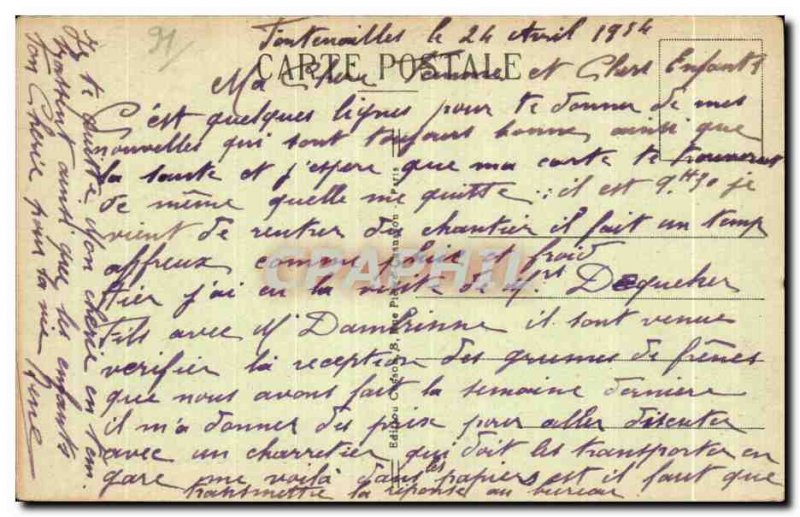 91/
Fontenailles le 24 Avril 1934
CARTE POSTALE
Ma Chère Femme et Chers Enfants
C'est quelques lignes pour te donner de mes
nouvelles qui sont toujours bonne, ainsi que
la sante et j'espere que ma carte te trouveras
de même quelle me quitte : il est 9H30 je
vient de rentrer du chantier il fait un temp
affreux comme pluie et froid
Hier j'ai eu la visite de Mrs Dequeker
Fils avec Mr Dambrinne il sont venue
verifier la reception des grumes de frênes
que nous avons fait la semaine derniere
il m'a donner des prix pour aller discuter
avec un charretier qui doit les transporter en
gare me voilà dans les papiers et il faut que
transmettre la réponse au bureau
Je te quitte Mon cherie en t'em
brassent ainsi que les enfants
Ton Cherie pour la vie
René
Edition
Paris
CPAPHIL